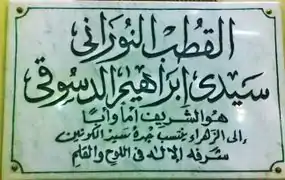 القطب النورانى
سيدى ابراهيم الدسوقى
هو الشريف أما وأبا
إلى الزهراء ينتسب جده سيد الكونين
شرفه الإله فى اللوح والقلم